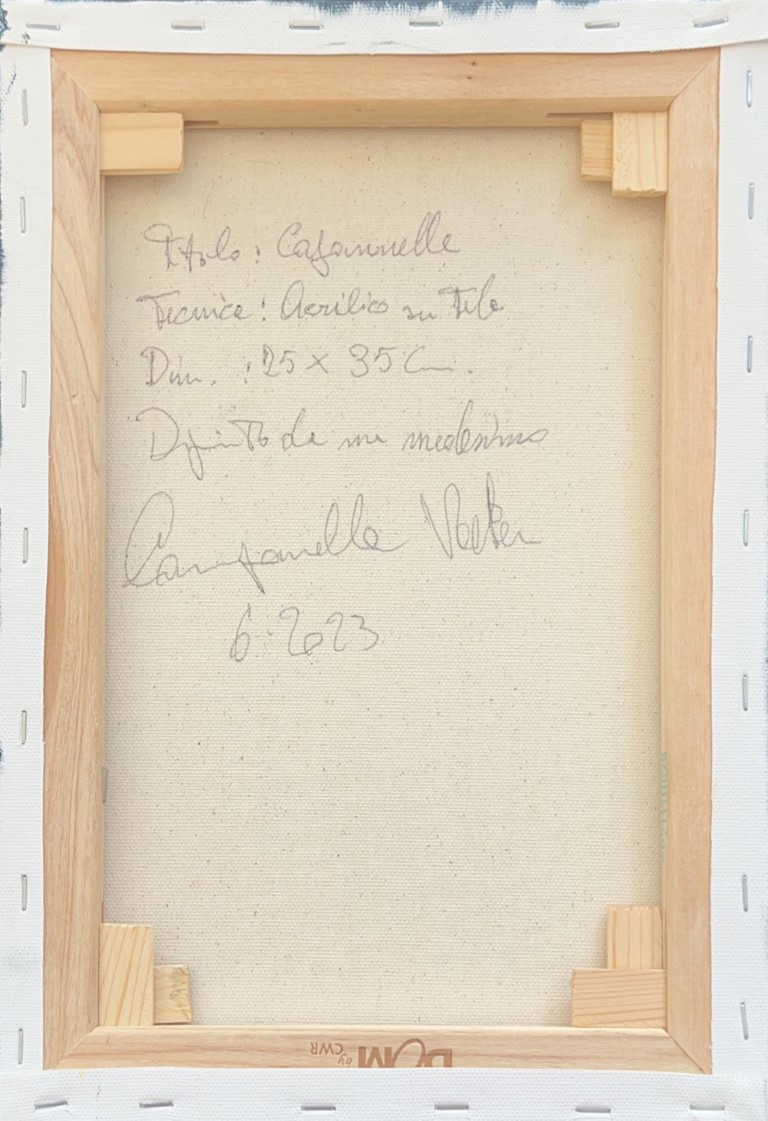 Titolo : Capannelle
Tecnica : Acrilico su Tela
Dim. : 25 x 35 Cm.
Dipinto da me medesimo
Campanella
6-2023
DOM by CWR